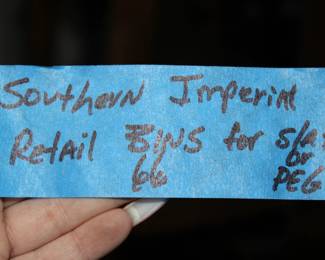 Southern Imperial
Retail BINS for Sla
66 or
PEG